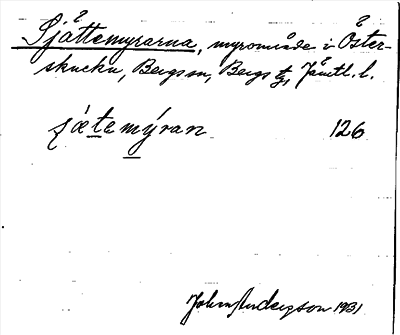 Sjåttemyrarna, myrområde i Öster-
skucku, Bergs sn, Bergs tg, Jämtl. l.
ʃætemýran 126
John Anderzson 1931